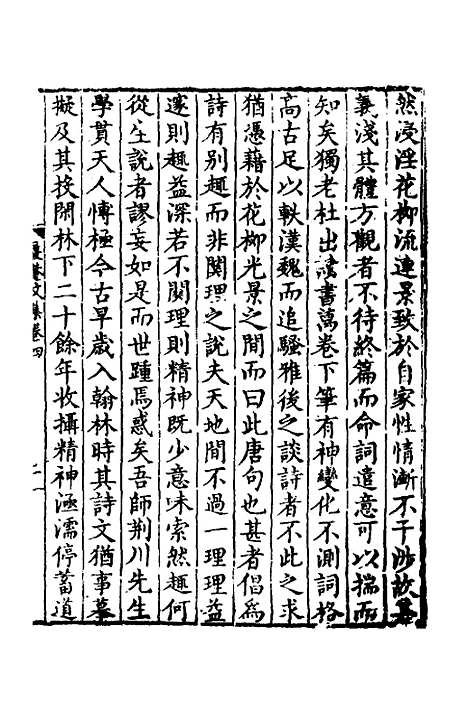 然浸淫花柳流連景致於自家性情漸不干涉故其
義淺其體方觀者不待終篇而命詞遣意可以揣而
知矣獨老杜出讀書萬卷下筆有神變化不測詞格
高古足以軼漢魏而追騷雅後之談詩者不此之求
猶憑藉於花柳光景之間而曰此唐句也甚者倡為
詩有别趣而非関理之說夫天地間不過一理理益
邃則趣益深若不関理則精神既少意味索然趣何
從生說者謬妄如是而世踵焉惑矣吾師荆川先生
學貫天人博極今古早歲入翰林時其詩文猶事摹
擬及其投閒林下二十餘年收攝精神涵濡停蓄道
文集卷四